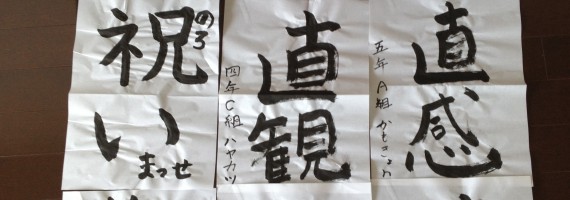 直感
五年A組
直観
四年C組 ハヤカワ
祝い
のろ
まっせ